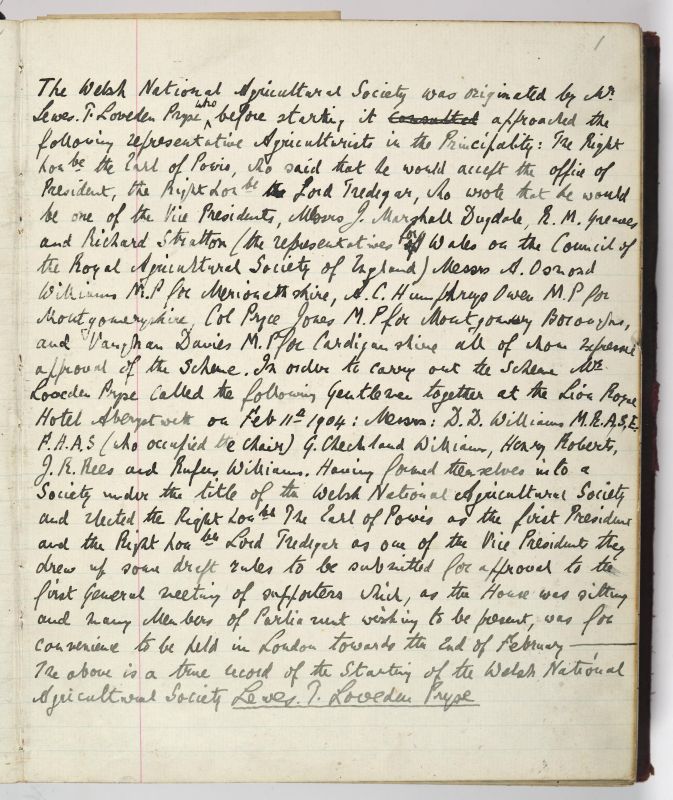 1
The Welsh National Agricultural Society was originated by Mr.
Lewes. T. Loveden Pryse who before starting it Consulted approached the
following representative Agriculturists in the Principality: The Right
honble the Earl of Powis, who said that he would accept the office of
President, the Right honble the Lord Tredegar, who wrote that he would
be one of the Vice Presidents, Messrs J. Marshall Dugdale, R. M. Greaves
and Richard Stratton (the representatives for Wales on the Council of
the Royal Agricultural Society of England) Messrs A. Osmond
Williams M.P for Merionethshire, A. C. Humphreys Owen M.P for
Montgomeryshire, Col Pryce Jones M.P for Montgomery Boroughs,
and Vaughan Davies M.P for Cardiganshire all of whom expressed
approval of the Scheme. In order to carry out the Scheme Mr.
Loveden Pryse called the following Gentlemen together at the Lion Royal
Hotel Aberystwith on Feb 11th 1904: Messrs: D. D. Williams M.R.A.S.E.
F.H.A.S (who occupied the chair) G. Checkland Williams, Henry Roberts,
J. R. Rees and Rufus Williams. Having formed themselves into a
Society under the title of the Welsh National Agricultural Society
and elected the Right honble The Earl of Powis as the first President
and the Right honble Lord Tredegar as one of the Vice Presidents they
drew up some draft rules to be submitted for approval to the
first General meeting of supporters which, as the House was sitting
and many Members of Parliament wishing to be present, was for
convenience to be held in London towards the End of February
The above is a true record of the Starting of the Welsh National
Agricultural Society Lewes. T. Loveden Pryse